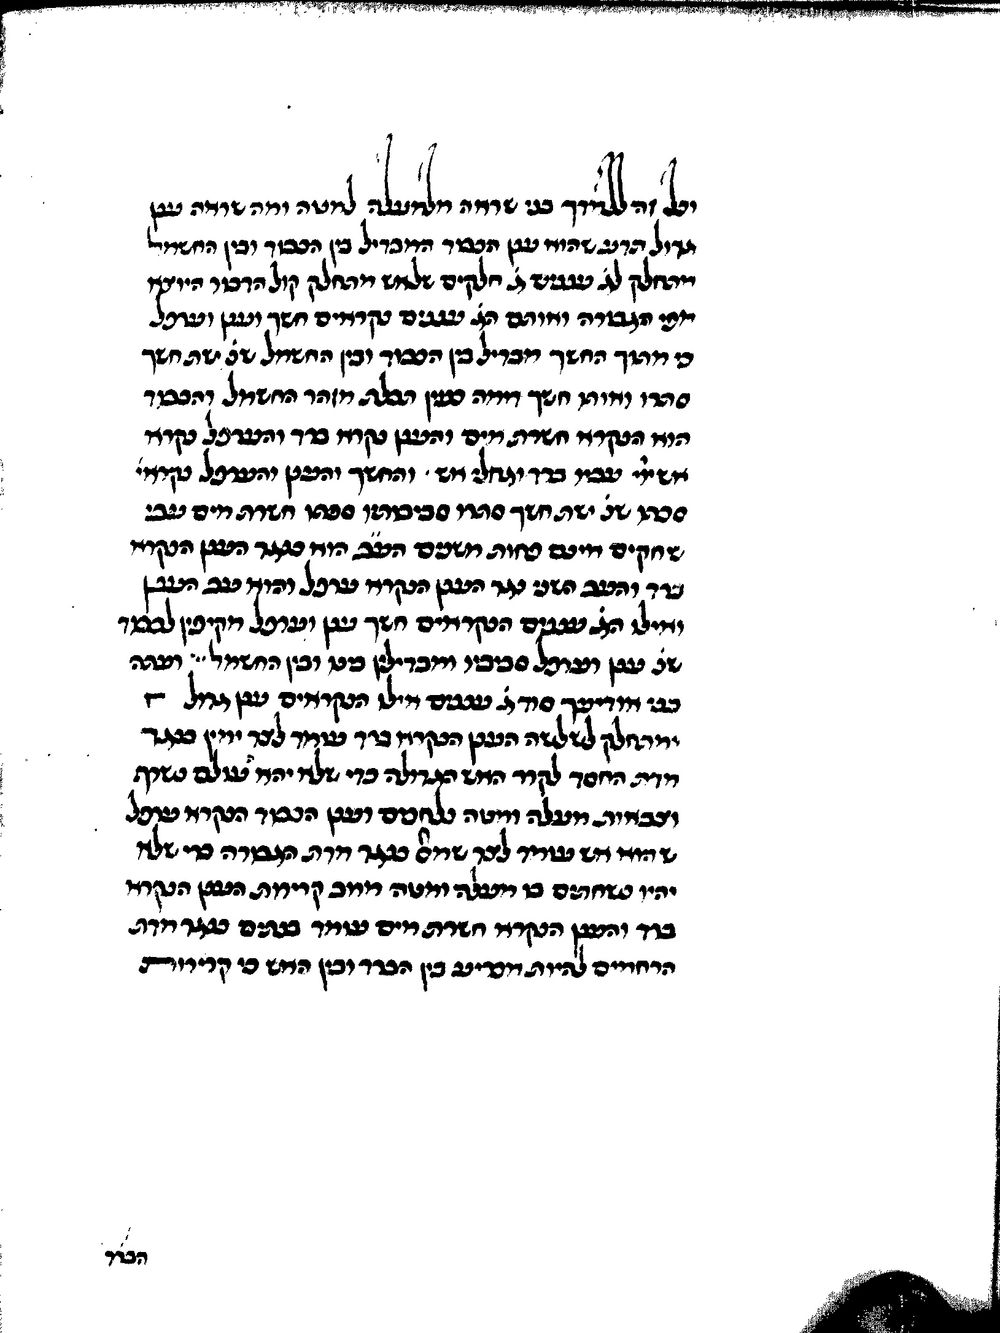 וכל זה ללמדך בני שראה מלמעלה למטה ומה שראה ענן
גדול הרע שהוא ענן הכבוד המבדיל בין הכבוד ובין החשמל
מתחלק לג' עננים ג' חלקים שלשם מתחלק קול הדבור היוצא
מפי הגבורה ואותם הג' עננים נקראים חשך וענן וערפל
כי מתוך החשך מבדיל בין הכבוד ובין החשמל שנ' ישת חשך
סתרו ואותו חשך דומה כעין תכלת מזהר החשמל והכבוד
הוא הנקרא חשרת מים והענן נקרא ברד והערפל נקרא
אש עביו ברד וגחלי אש · והחשך והענן והערפל נקראי'
סכתו שנ' ישת חשך סתרו סביבותיו סכתו חשרת מים עבי
שחקים חינם פחות משנים העב הוא כנגד הענן הנקרא
ברד והעב השני נגד הענן הנקרא ערפל והוא עב הענן
ואילו הג' עננים הנקראים חשך ענן וערפל מקיפין לכבוד
שנ' ענן וערפל סביביו ומבדילין בינו ובין החשמל ׃ ועתה
בני אודיעך סוד ג' עננים אילו הנקראים ענן גדול
ומתחלק לשלשה הענן הנקרא ברד עומד לצד ימין כנגד
מדת החסד לקרר האש הגדולה כדי שלא יהא עולם נשרף
וצבאות מעלה ומטה נלחמים וענן הכבוד הנקרא ערפל
שהוא אש עומד לצד שמאל כנגד מדת הגבורה כדי שלא
יהיו נשחתים בו מעלה ומטה מרוב קרירות הענן הנקרא
ברד והענן הנקרא חשרת מים עומד בנתים כנגד מדת
הרחמים להיות מכריע בין הברד ובין האש כי קרירות
הברד